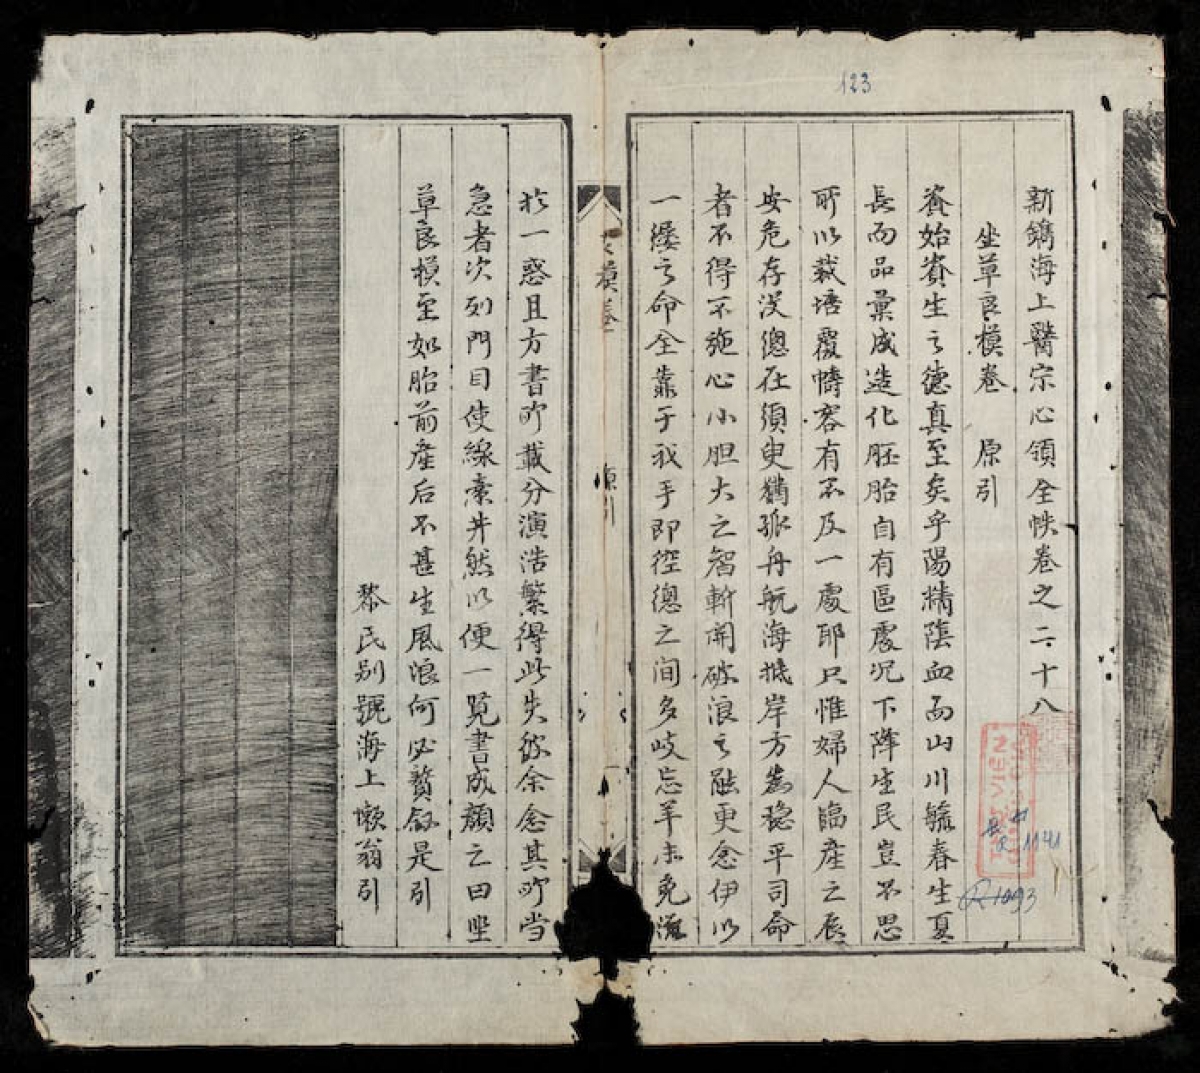 123
新鐫海上醫宗心領全帙卷之二十八
坐草良模卷 原引
資始資生之德真至矣乎陽精陰血而山川毓春生夏
長而品彙成造化胚胎自有區處况下降生民豈不思
所以栽培覆幬容有不及一處耶只惟婦人臨產之辰
安危存没總在須臾猶孤舟航海抵岸方為穩平司命
者不得不施心小胆大之智斬開破浪之能更念伊以
一縷之命全靠于我手即徑總之间多岐忘羊未免滋
扵一惑且方書所載分演浩繁得此失彼余念其所當
急者次列門目使線索井然以便一覽書成顏之曰坐
草良模至如胎前產后不甚生風浪何必贅敘是引
黎民別號海上懒翁引
模卷
原引
THƯ VIỆN
R 1141
R1093